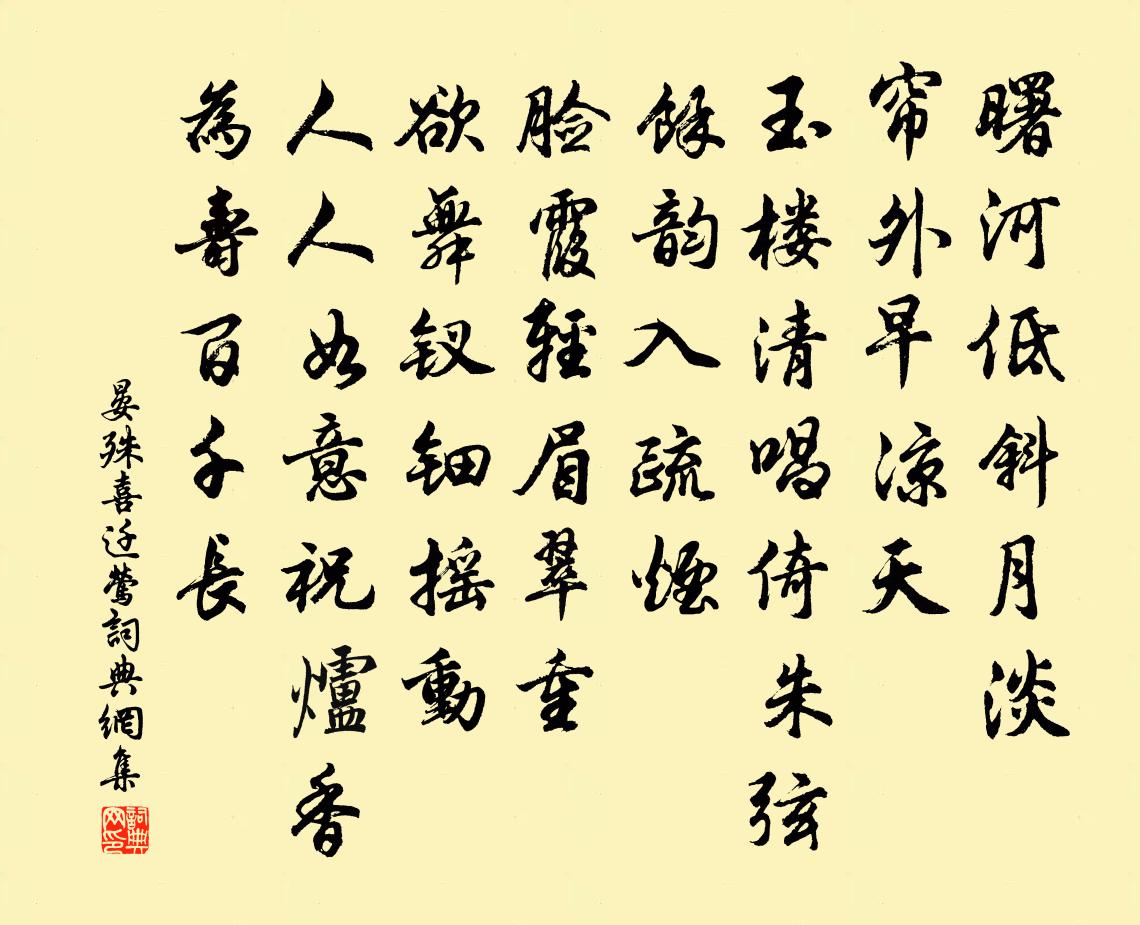 曙河低斜月淡
帘外早凉天
玉楼清唱倚朱弦
餘韵入疏煙
脸霞輕眉翠重
欲舞钗钿摇動
人人如意祝爐香
為壽百千長
晏殊喜迁鶯詞典網集
詞典网印